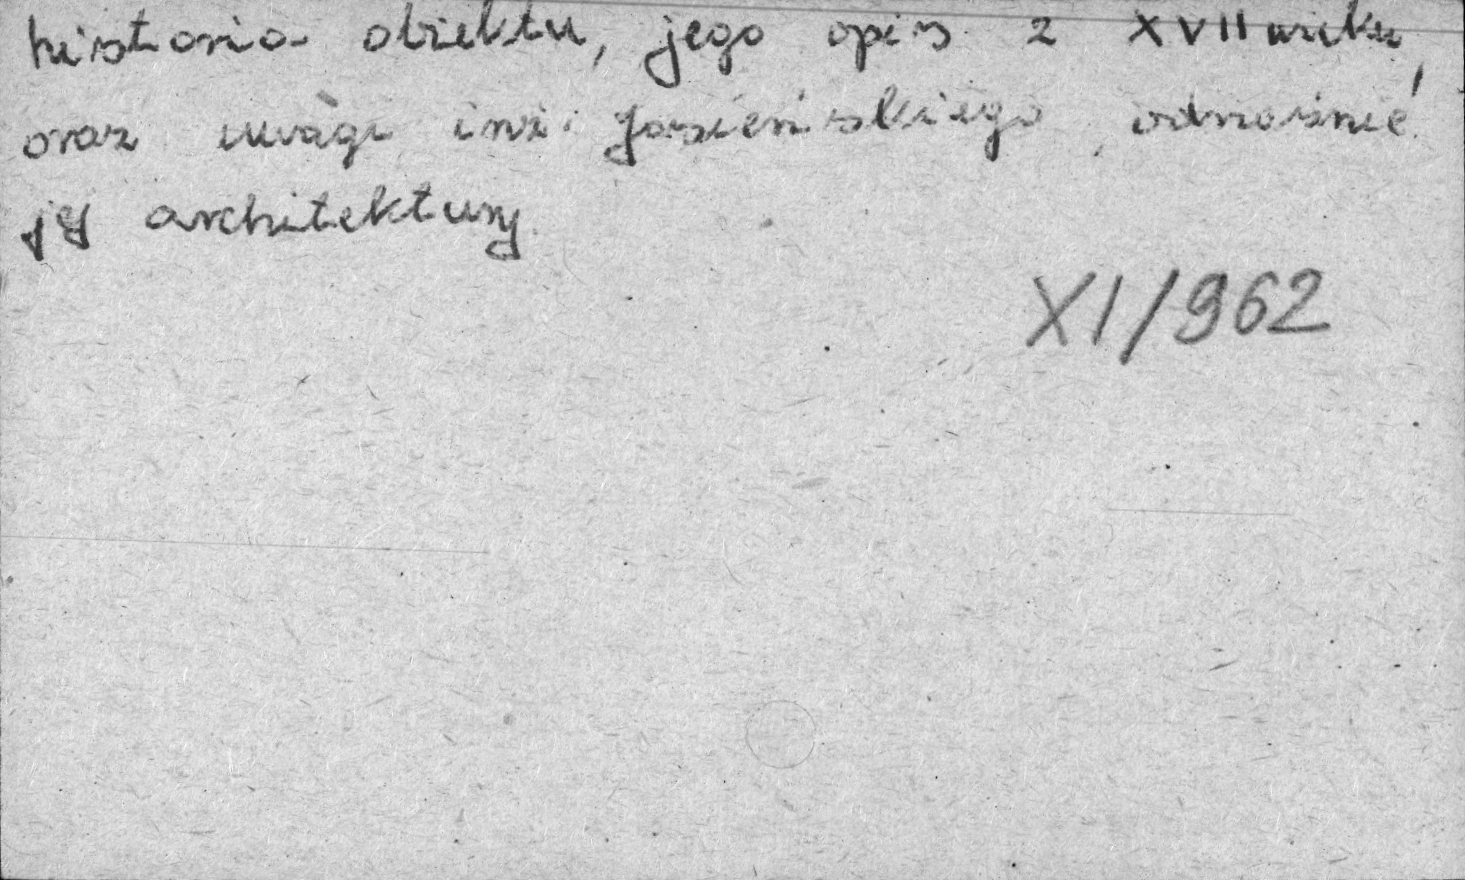 historia obiektu, jego opis z XVII wieku,
oraz uwagi inż. Jasieńskiego odnośnie
jej architektury
XI/962